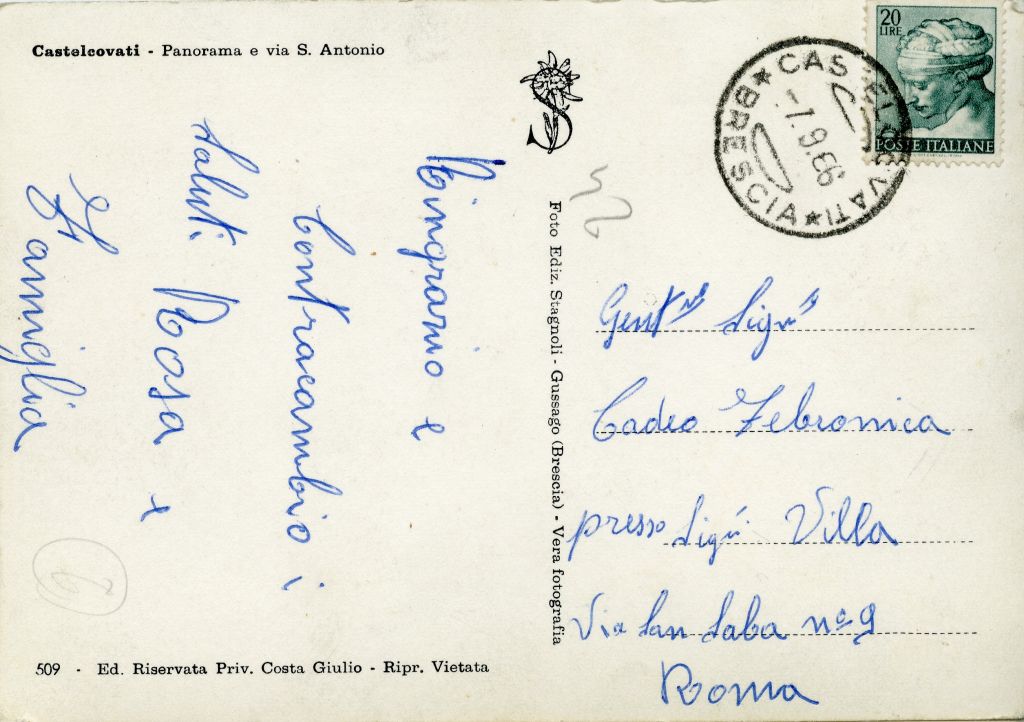 Castelcovati - Panorama e via S. Antonio
Ringrazio e
Contracambio i
saluti Rosa e
Famiglia
509 - Ed. Riservata Priv. Costa Giulio - Ripr. Vietata
Foto Ediz. Stagnoli - Gussago (Brescia) - Vera fotografia
20
LIRE
POSTE ITALIANE
CASTELCOVATI
BRESCIA
-7.9.66
Cadeo Febronica
presso Sigri Villa
Via San Saba nº 9
Roma